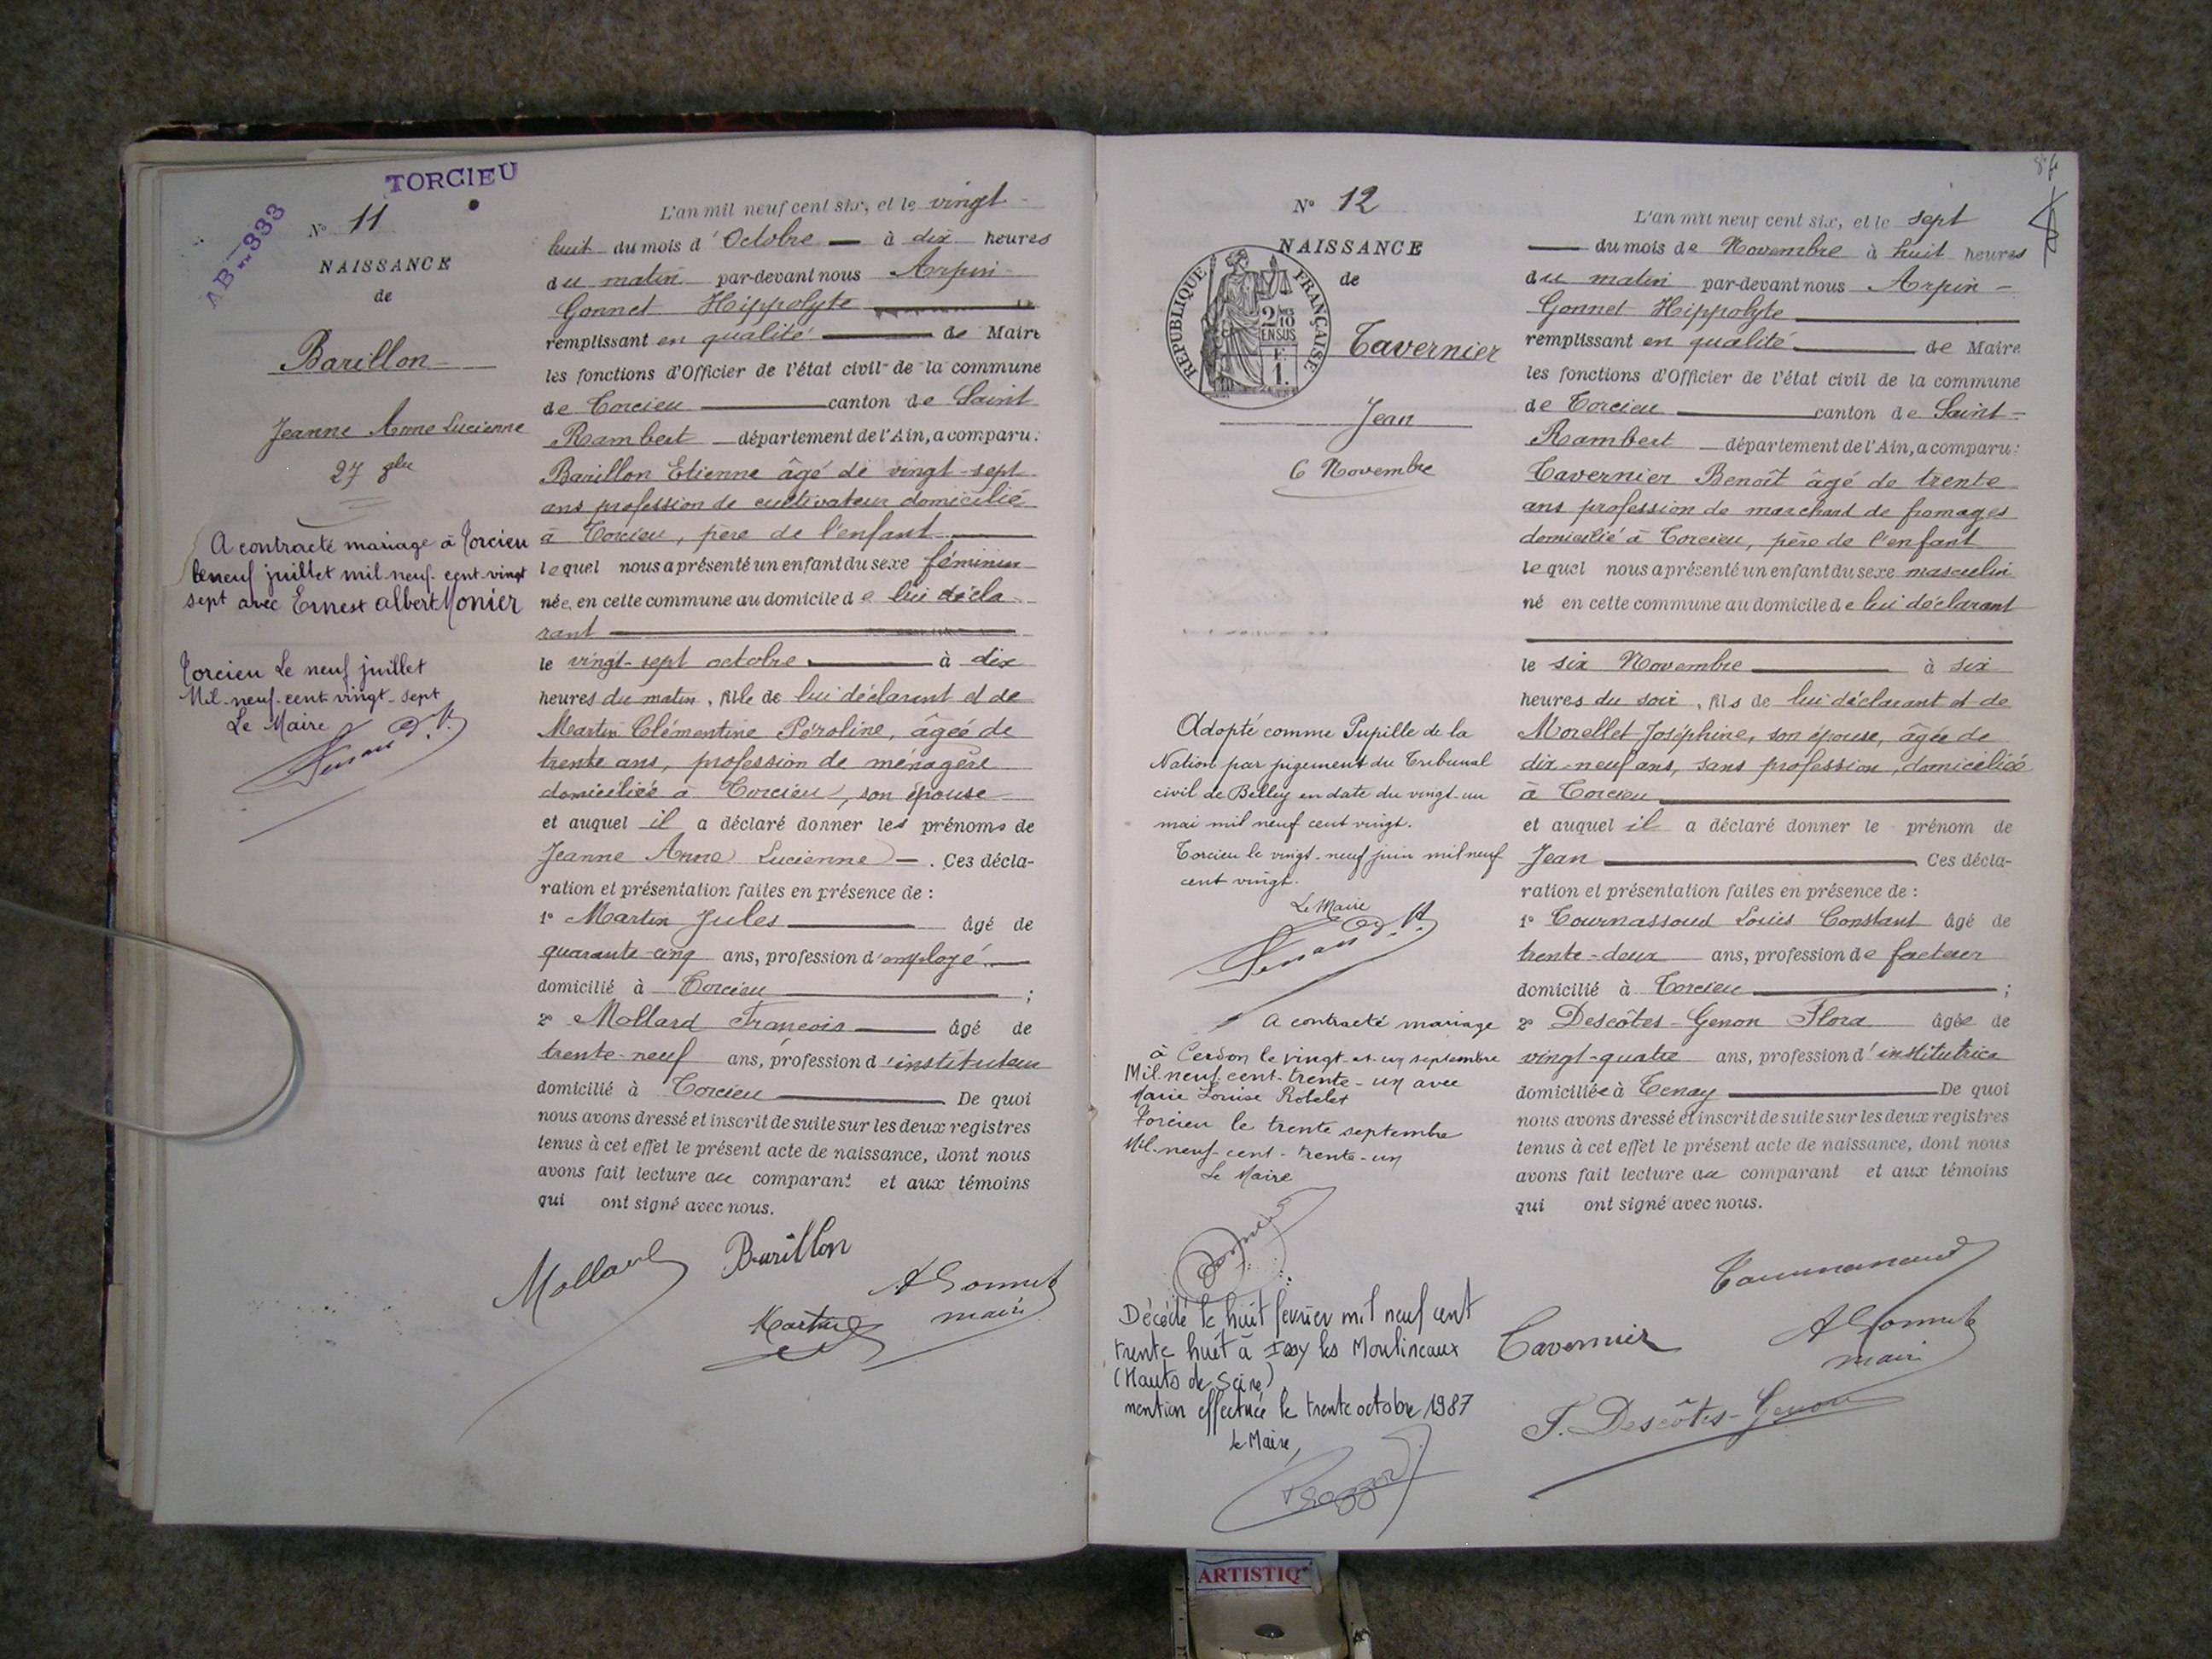 TORCIEU
AB 333
N° 11
NAISSANCE
de
Barillon
Jeanne Anne Lucienne
27 8bre
A contracté mariage à Torcieu
le neuf juillet mil neuf cent vingt
sept avec Ernest Albert Monier
Torcieu Le neuf juillet
Mil-neuf-cent-vingt-sept
Le Maire
L'an mil neuf cent six, et le vingt-
huit du mois d'Octobre à dix heures
du matin par-devant nous Arpin-
Gonnet Hippolyte
remplissant en qualité de Maire
les fonctions d'Officier de l'état civil de la commune
de Torcieu canton de Saint
Rambert département de l'Ain, a comparu:
Barillon Etienne âgé de vingt-sept
ans profession de cultivateur domicilié
à Torcieu, père de l'enfant
lequel nous a présenté un enfant du sexe féminin
née, en cette commune au domicile de lui décla-
rant
le vingt-sept octobre à dix
heures du matin, fille de lui déclarant et de
Martin Clémentine Péroline, âgée de
trente ans, profession de ménagère
domiciliée à Torcieu, son épouse
et auquel il a déclaré donner les prénoms de
Jeanne Anne Lucienne. Ces décla-
ration et présentation faites en présence de :
1° Martin Jules âgé de
quarante-cinq ans, profession d'employé
domicilié à Torcieu ;
2° Mollard François âgé de
trente-neuf ans, profession d'instituteur
domicilié à Torcieu De quoi
nous avons dressé et inscrit de suite sur les deux registres
tenus à cet effet le présent acte de naissance, dont nous
avons fait lecture au comparant et aux témoins
qui ont signé avec nous.
Mollard Barillon
A Gonnet
Martin maire
N° 12
NAISSANCE
de
REPUBLIQUE FRANÇAISE
2/10
EN SUS
1 F.
Tavernier
Jean
6 Novembre
Adopté comme Pupille de la
Nation par jugement du Tribunal
civil de Belley en date du vingt-un
mai mil neuf cent vingt.
Torcieu le vingt-neuf juin mil neuf
cent vingt.
Le Maire
A contracté mariage
à Cerdon le vingt-et-un septembre
Mil-neuf-cent-trente-un avec
Marie Louise Robelet
Torcieu le trente septembre
Mil-neuf-cent-trente-un
Le Maire
Décédé le huit février mil neuf cent
trente huit à Issy les Moulineaux
(Hauts de Seine)
mention effectuée le trente octobre 1987
le Maire,
L'an mil neuf cent six, et le sept
du mois de Novembre à huit heures
du matin par-devant nous Arpin-
Gonnet Hippolyte
remplissant en qualité de Maire
les fonctions d'Officier de l'état civil de la commune
de Torcieu canton de Saint-
Rambert département de l'Ain, a comparu:
Tavernier Benoît âgé de trente
ans profession de marchand de fromages
domicilié à Torcieu, père de l'enfant
lequel nous a présenté un enfant du sexe masculin
né en cette commune au domicile de lui déclarant
le six Novembre à six
heures du soir, fils de lui déclarant et de
Morellet Joséphine, son épouse, âgée de
dix-neuf ans, sans profession, domiciliée
à Torcieu
et auquel il a déclaré donner le prénom de
Jean Ces décla-
ration et présentation faites en présence de :
1° Tournassoud Louis Constant âgé de
trente-deux ans, profession de facteur
domicilié à Torcieu ;
2° Descôtes-Genon Flora âgée de
vingt-quatre ans, profession d'institutrice
domiciliée à Tenay De quoi
nous avons dressé et inscrit de suite sur les deux registres
tenus à cet effet le présent acte de naissance, dont nous
avons fait lecture au comparant et aux témoins
qui ont signé avec nous.
Tournassoud
Tavernier A Gonnet
maire
F. Descôtes-Genon
ARTISTIQ